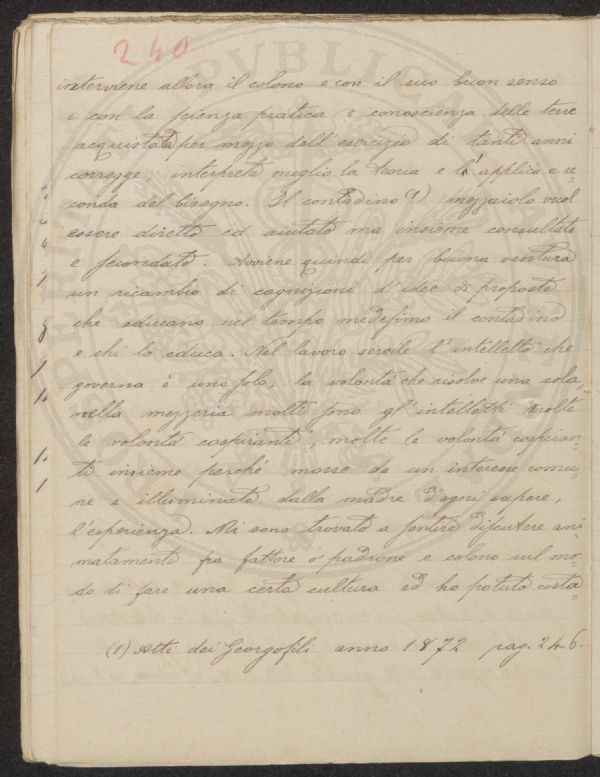 240
interviene allora il colono e con il suo buon senso
e con la scienza pratica e conoscienza delle terre
acquistata per mezzo dell'esercizio di tanti anni
corregge, interpreta meglio la teoria e l'applica a se=
conda del bisogno. Il contadino (1) mezzaiolo vuol
essere diretto ed aiutato ma insieme consultato
e secondato. Avviene quindi per buona ventura
un ricambio di cognizioni d'idee di proposte
che educano nel tempo medesimo il contadino
e chi lo educa. Nel lavoro servile l'intelletto che
governa è uno solo, la volontà che risolve una sola,
nella mezzeria molti sono gl'intelletti molte
le volontà cospiranti, molte le volontà cospiran=
ti insieme perché mosse da un interesse comu=
ne e illuminato dalla madre d'ogni sapere,
l'esperienza. Mi sono trovato a sentire discutere ani=
matamente fra fattore o padrone e colono sul mo=
do di fare una certa cultura ed ho potuto costa=
(1) Atti dei Georgofili anno 1872 pag. 246.